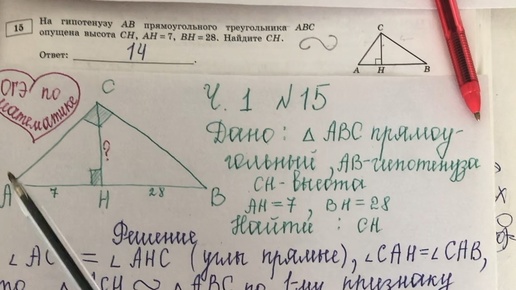 15
На гипотенузу AB прямоугольного треугольника ABC
опущена высота CH, AH = 7, BH = 28. Найдите CH.
Ответ: 14
C
A H B
ОГЭ по
математике
Ч. 1 №15
C
?
A 7 H 28 B
Дано: △ ABC прямоу-
гольный, AB-гипотенуза
CH-высота
AH = 7, BH = 28
Найти: CH
Решение
= ∠ AHC (углы прямые), ∠CAH = ∠CAB,
△ ABC по 1-му признаку